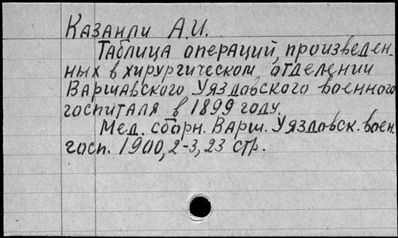 Казанли А.И.
Таблица операций, произведен-
ных в хирургическом отделении
Варшавского Уяздовского военного
госпиталя в 1899 году.
Мед. сборн. Варш. Уяздовск. воен.
госп. 1900, 2-3, 23 стр.